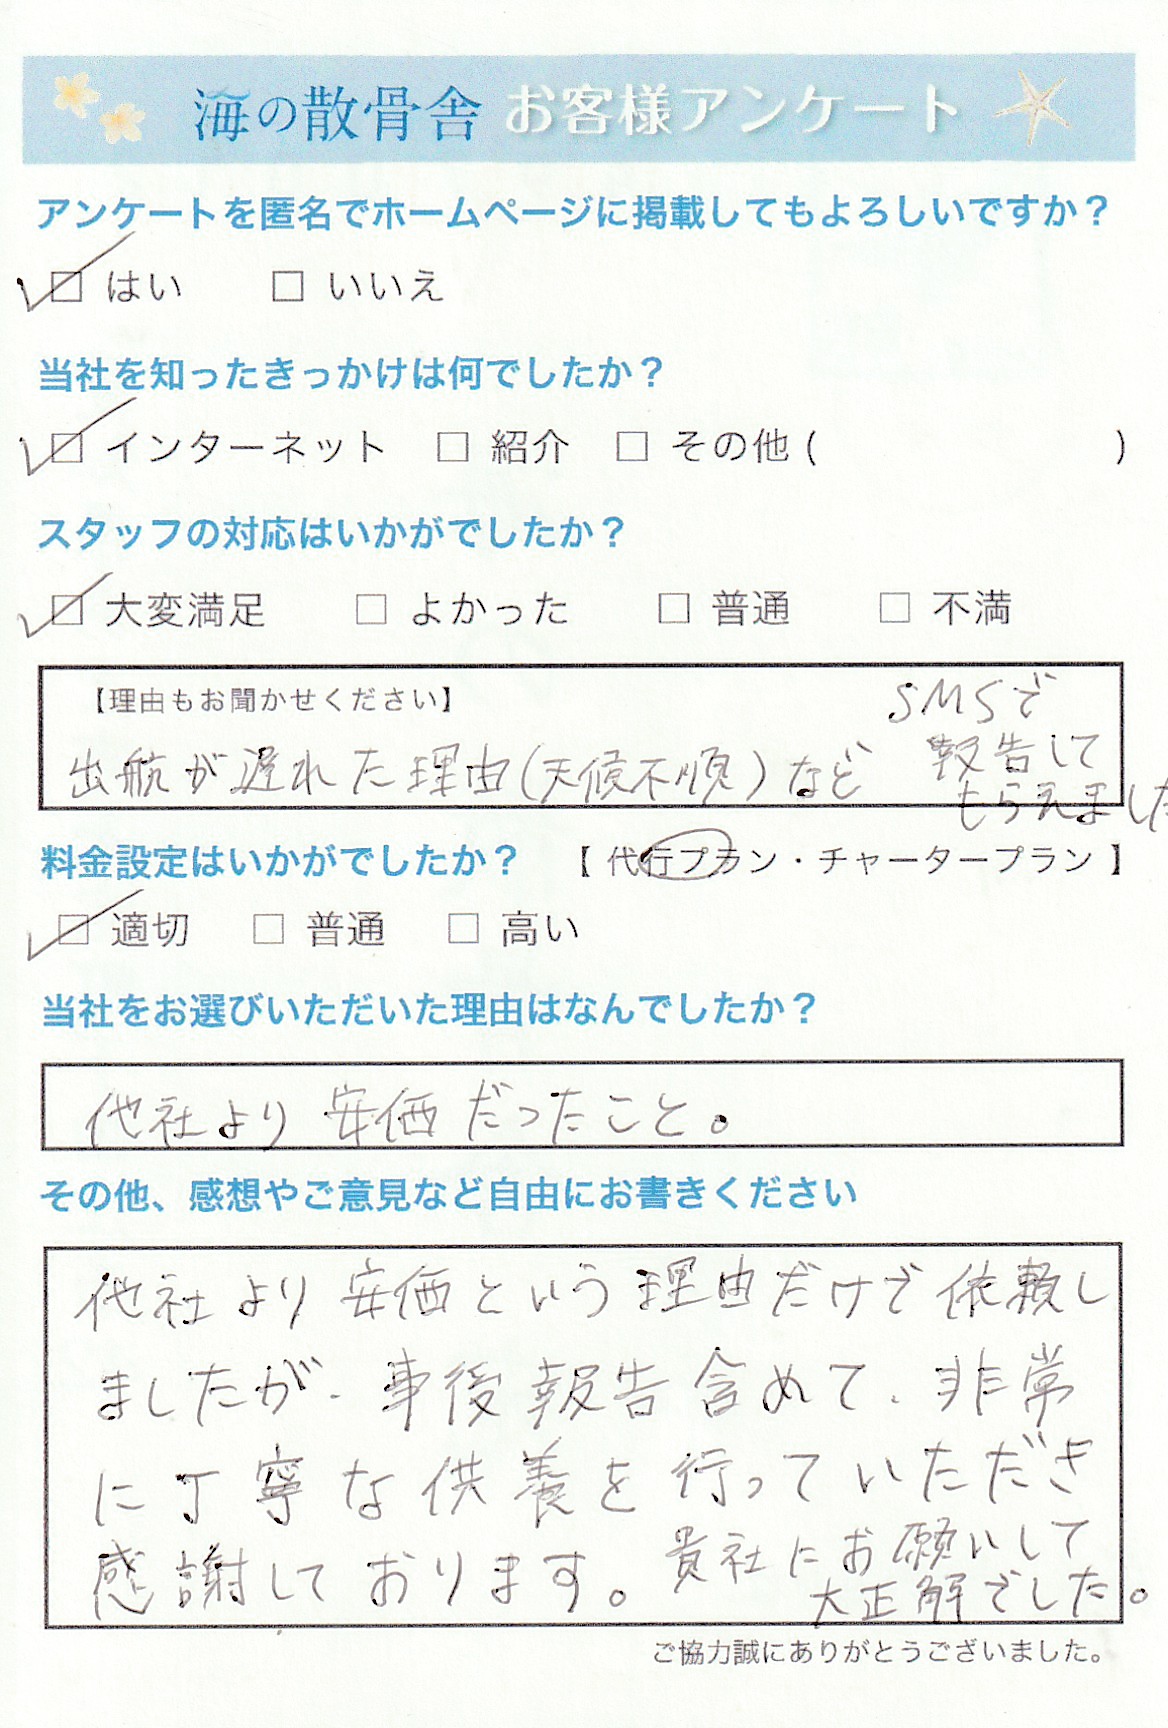 海の散骨舎 お客様アンケート
アンケートを匿名でホームページに掲載してもよろしいですか？
☑ はい □ いいえ
当社を知ったきっかけは何でしたか？
☑ インターネット □ 紹介 □ その他 ( )
スタッフの対応はいかがでしたか？
☑ 大変満足 □ よかった □ 普通 □ 不満
【理由もお聞かせください】
出航が遅れた理由(天候不順)など
SMSで
報告して
もらえました
料金設定はいかがでしたか？ 【 代行プラン・チャータープラン 】
☑ 適切 □ 普通 □ 高い
当社をお選びいただいた理由はなんでしたか？
他社より安価だったこと。
その他、感想やご意見など自由にお書きください
他社より安価という理由だけで依頼し
ましたが、事後報告含めて、非常
に丁寧な供養を行っていただき
感謝しております。貴社にお願いして
大正解でした。
ご協力誠にありがとうございました。